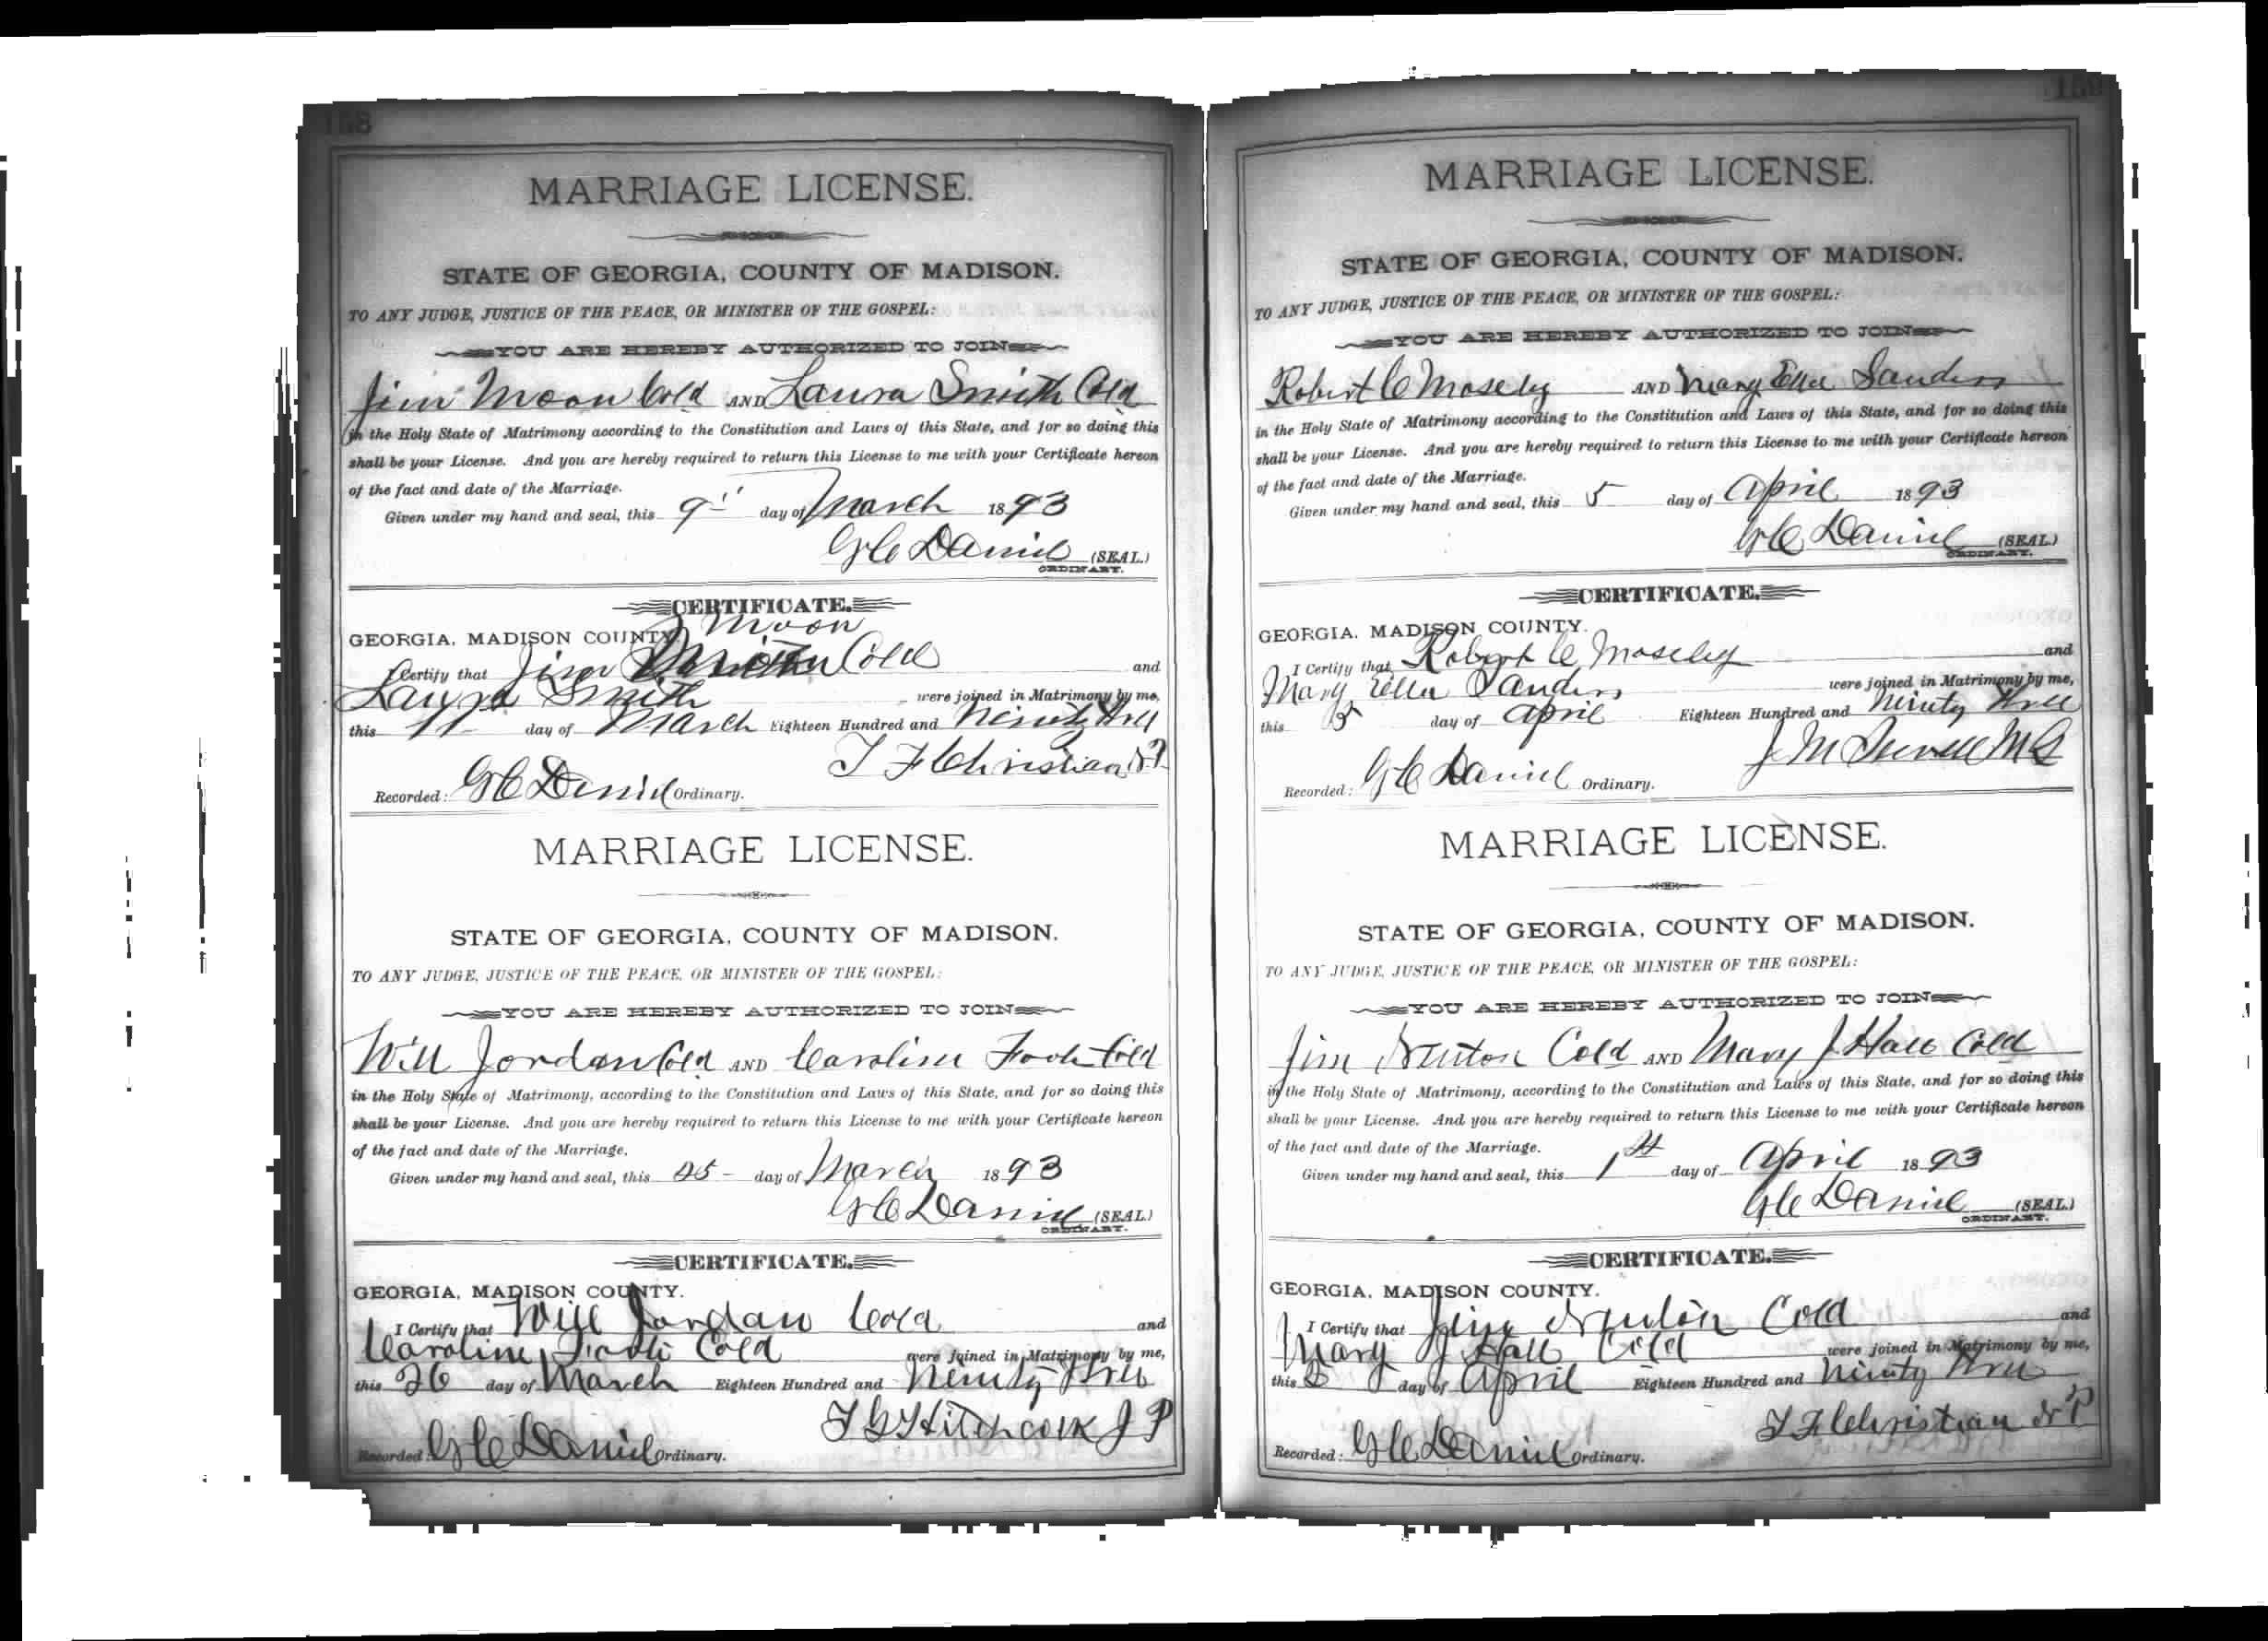 158
MARRIAGE LICENSE.
STATE OF GEORGIA, COUNTY OF MADISON.
TO ANY JUDGE, JUSTICE OF THE PEACE, OR MINISTER OF THE GOSPEL:
YOU ARE HEREBY AUTHORIZED TO JOIN
Jim Moon Cold AND Laura Smith Cold
in the Holy State of Matrimony according to the Constitution and Laws of this State, and for so doing this
shall be your License. And you are hereby required to return this License to me with your Certificate hereon
of the fact and date of the Marriage.
Given under my hand and seal, this 9 day of March 1893
G C Daniel (SEAL.)
ORDINARY.
CERTIFICATE.
GEORGIA, MADISON COUNTY. Moon
I Certify that Jim Cold and
Laura Smith were joined in Matrimony by me,
this 11 day of March Eighteen Hundred and Ninety Three
T F Christian N P
Recorded: G C Daniel Ordinary.
MARRIAGE LICENSE.
STATE OF GEORGIA, COUNTY OF MADISON.
TO ANY JUDGE, JUSTICE OF THE PEACE, OR MINISTER OF THE GOSPEL:
YOU ARE HEREBY AUTHORIZED TO JOIN
Will Jordan Cold AND Caroline Cold
in the Holy State of Matrimony, according to the Constitution and Laws of this State, and for so doing this
shall be your License. And you are hereby required to return this License to me with your Certificate hereon
of the fact and date of the Marriage.
Given under my hand and seal, this 25 day of March 1893
G C Daniel (SEAL.)
ORDINARY.
CERTIFICATE.
GEORGIA, MADISON COUNTY.
I Certify that Will Jordan Cold and
Caroline Cold were joined in Matrimony by me,
this 26 day of March Eighteen Hundred and Ninety Three
T G Hitchcock J P
Recorded: G C Daniel Ordinary.
159
MARRIAGE LICENSE.
STATE OF GEORGIA, COUNTY OF MADISON.
TO ANY JUDGE, JUSTICE OF THE PEACE, OR MINISTER OF THE GOSPEL:
YOU ARE HEREBY AUTHORIZED TO JOIN
Robert C Moseley AND Mary Ella Sanders
in the Holy State of Matrimony according to the Constitution and Laws of this State, and for so doing this
shall be your License. And you are hereby required to return this License to me with your Certificate hereon
of the fact and date of the Marriage.
Given under my hand and seal, this 5 day of April 1893
G C Daniel (SEAL.)
ORDINARY.
CERTIFICATE.
GEORGIA, MADISON COUNTY.
I Certify that Robert C Moseley and
Mary Ella Sanders were joined in Matrimony by me,
this 5 day of April Eighteen Hundred and Ninety Three
J M M G
Recorded: G C Daniel Ordinary.
MARRIAGE LICENSE.
STATE OF GEORGIA, COUNTY OF MADISON.
TO ANY JUDGE, JUSTICE OF THE PEACE, OR MINISTER OF THE GOSPEL:
YOU ARE HEREBY AUTHORIZED TO JOIN
Jim Cold AND Mary J Hall Cold
in the Holy State of Matrimony, according to the Constitution and Laws of this State, and for so doing this
shall be your License. And you are hereby required to return this License to me with your Certificate hereon
of the fact and date of the Marriage.
Given under my hand and seal, this 1st day of April 1893
G C Daniel (SEAL.)
ORDINARY.
CERTIFICATE.
GEORGIA, MADISON COUNTY.
I Certify that Jim Cold and
Mary J Hall Cold were joined in Matrimony by me,
this day of April Eighteen Hundred and Ninety Three
T F Christian N P
Recorded: G C Daniel Ordinary.